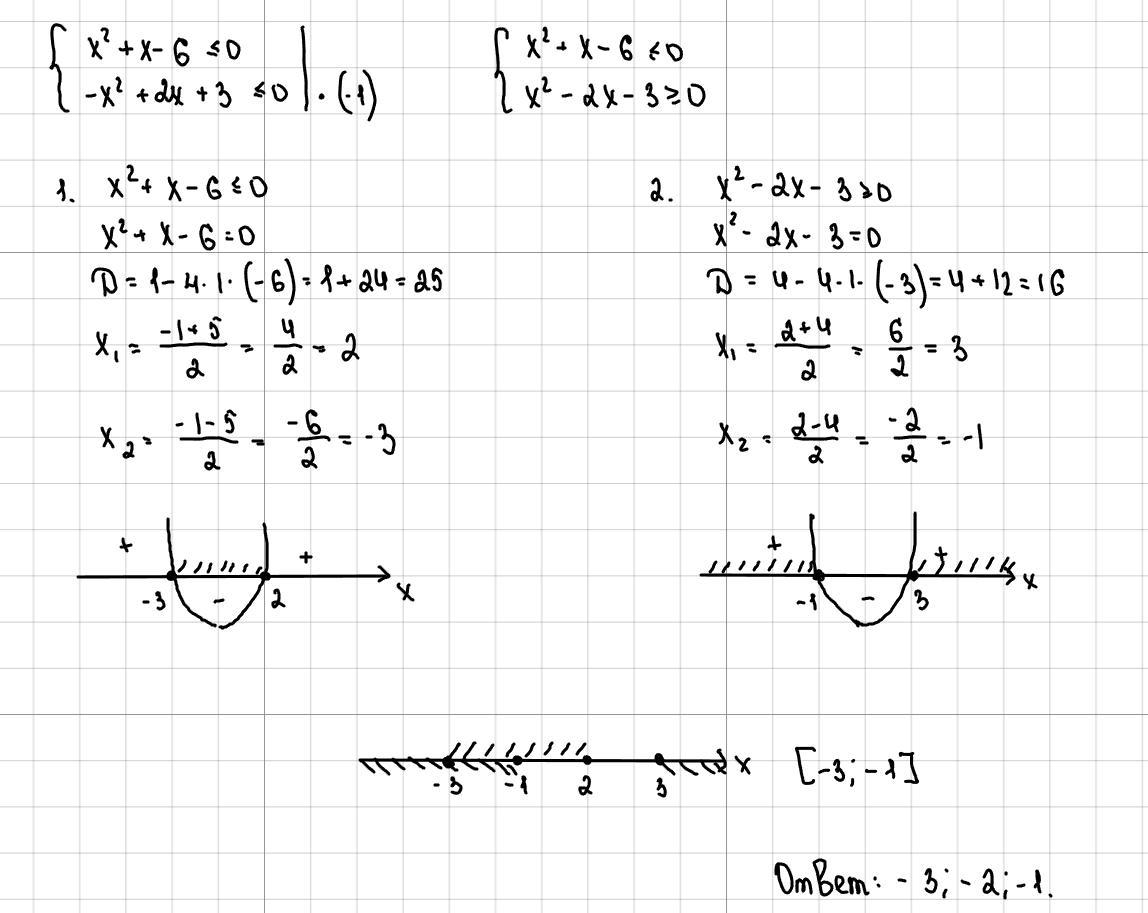 { x² + x - 6 ≤ 0 | · (-1)
{ -x² + 2x + 3 ≤ 0
{ x² + x - 6 ≤ 0
{ x² - 2x - 3 ≥ 0
1. x² + x - 6 ≤ 0
x² + x - 6 = 0
D = 1 - 4 · 1 · (-6) = 1 + 24 = 25
x₁ = (-1+5)/2 = 4/2 = 2
x₂ = (-1-5)/2 = -6/2 = -3
+ - +
-3 2 x
2. x² - 2x - 3 ≥ 0
x² - 2x - 3 = 0
D = 4 - 4 · 1 · (-3) = 4 + 12 = 16
x₁ = (2+4)/2 = 6/2 = 3
x₂ = (2-4)/2 = -2/2 = -1
+ - +
-1 3 x
-3 -1 2 3 x [-3; -1]
Ответ: -3; -2; -1.